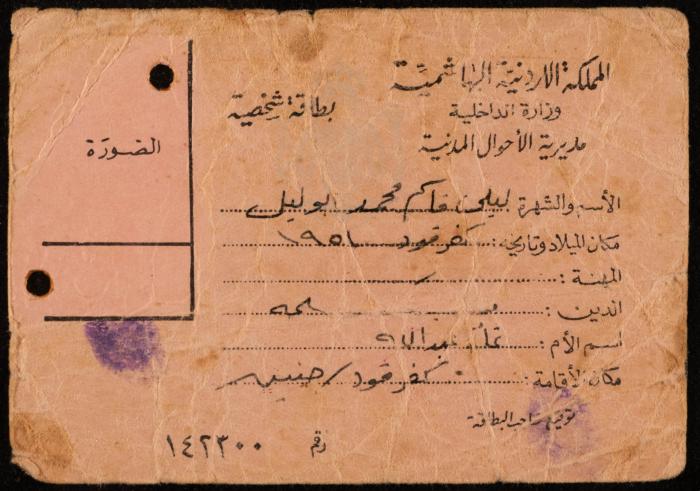 المملكة الاردنية الهاشمية
وزارة الداخلية
بطاقة شخصية
مديرية الأحوال المدنية
الصورة
الأسم والشهرة ليلى قاسم محمد ابو ليل
مكان الميلاد وتاريخه: كفرقود ١٩٥١
المهنة :
الدين : مسلمه
اسم الأم : عبدالله
مكان الأقامة: كفرقود / جنين
توقيع صاحب البطاقة
رقم ١٤٢٣٠٠